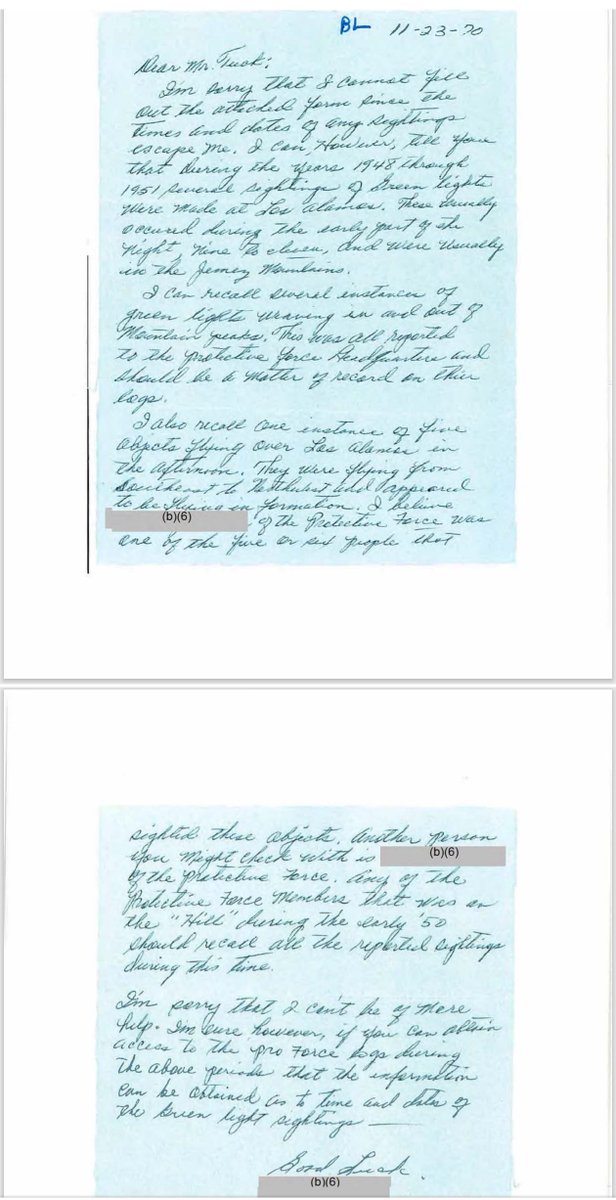 BL 11-23-70
Dear Mr. Tuck:
I'm sorry that I cannot fill
out the attached form since the
times and dates of any sightings
escape me. I can However, tell you
that during the years 1948 through
1951 several sightings of Green lights
were made at Los Alamos. These usually
occured during the early part of the
night, nine to eleven, and were usually
in the Jemez Mountains.
I can recall several instances of
green lights weaving in and out of
Mountain peaks. This was all reported
to the protective force Headquarters and
should be a matter of record on thier
logs.
I also recall one instance of five
objects flying over Los Alamos in
the afternoon. They were flying from
Southeast to Northwest and appeared
to be flying in formation. I believe
(b)(6) of the Protective Force was
one of the five or six people that
sighted these objects. Another person
you might check with is (b)(6)
of the protective Force. Any of the
Protective Force Members that was on
the "Hill" during the early '50
should recall all the reported sightings
during this time.
I'm sorry that I can't be of more
help. I'm sure however, if you can obtain
access to the pro Force logs during
the above periods that the information
can be obtained as to time and dates of
the Green light sightings —
Good Luck.
(b)(6)